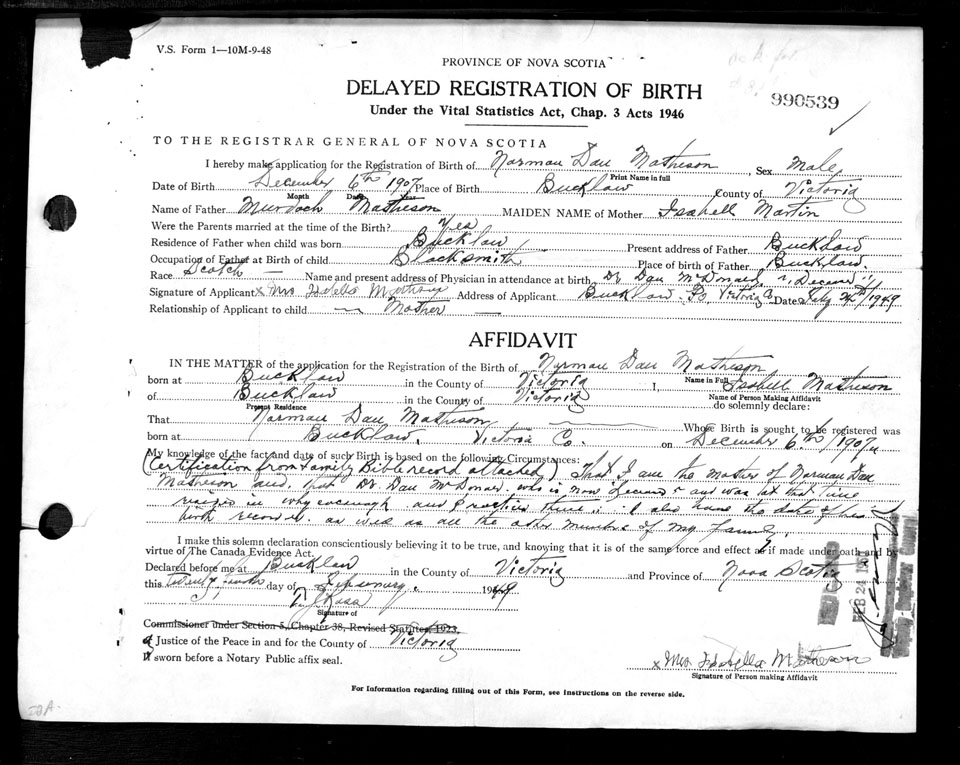 V.S. Form 1—10M-9-48
PROVINCE OF NOVA SCOTIA
DELAYED REGISTRATION OF BIRTH
990539
Under the Vital Statistics Act, Chap. 3 Acts 1946
TO THE REGISTRAR GENERAL OF NOVA SCOTIA
I hereby make application for the Registration of Birth of Norman Dan Matheson, Sex Male
Print Name in full
Date of Birth December 6th 1907 Place of Birth Bucklaw County of Victoria
Month Date Year
Name of Father Murdoch Matheson MAIDEN NAME of Mother Isabell Martin
Were the Parents married at the time of the Birth? Yes
Residence of Father when child was born Bucklaw Present address of Father Bucklaw
Occupation of Father at Birth of child Blacksmith Place of birth of Father Bucklaw.
Race Scotch — Name and present address of Physician in attendance at birth Dr Dan McDonald
Signature of Applicant x Mrs Isabella Matheson Address of Applicant Bucklaw Victoria Co Date 1949
Relationship of Applicant to child — Mother —
AFFIDAVIT
IN THE MATTER of the application for the Registration of the Birth of Norman Dan Matheson
Name in Full
born at Bucklaw in the County of Victoria I, Isabell Matheson
Name of Person Making Affidavit
of Bucklaw in the County of Victoria do solemnly declare:
Present Residence
That Norman Dan Matheson Whose Birth is sought to be registered was
born at Bucklaw, Victoria Co. on December 6th 1907
My knowledge of the fact and date of such Birth is based on the following Circumstances:
(Certification from Family Bible record attached) That I am the mother of Norman Dan
Matheson and that Dr. Dan who is now and was at that time
in and there I also have the date of his
birth recorded as well as all the other members of my family.
I make this solemn declaration conscientiously believing it to be true, and knowing that it is of the same force and effect as if made under oath and by
virtue of The Canada Evidence Act.
Declared before me at Bucklaw in the County of Victoria and Province of Nova Scotia
this day of 1949
Ross
Signature of
Commissioner under Section 5, Chapter 38, Revised Statutes, 1923.
a Justice of the Peace in and for the County of Victoria
If sworn before a Notary Public affix seal.
x Mrs Isabella Matheson
Signature of Person making Affidavit
For Information regarding filling out of this Form, see Instructions on the reverse side.